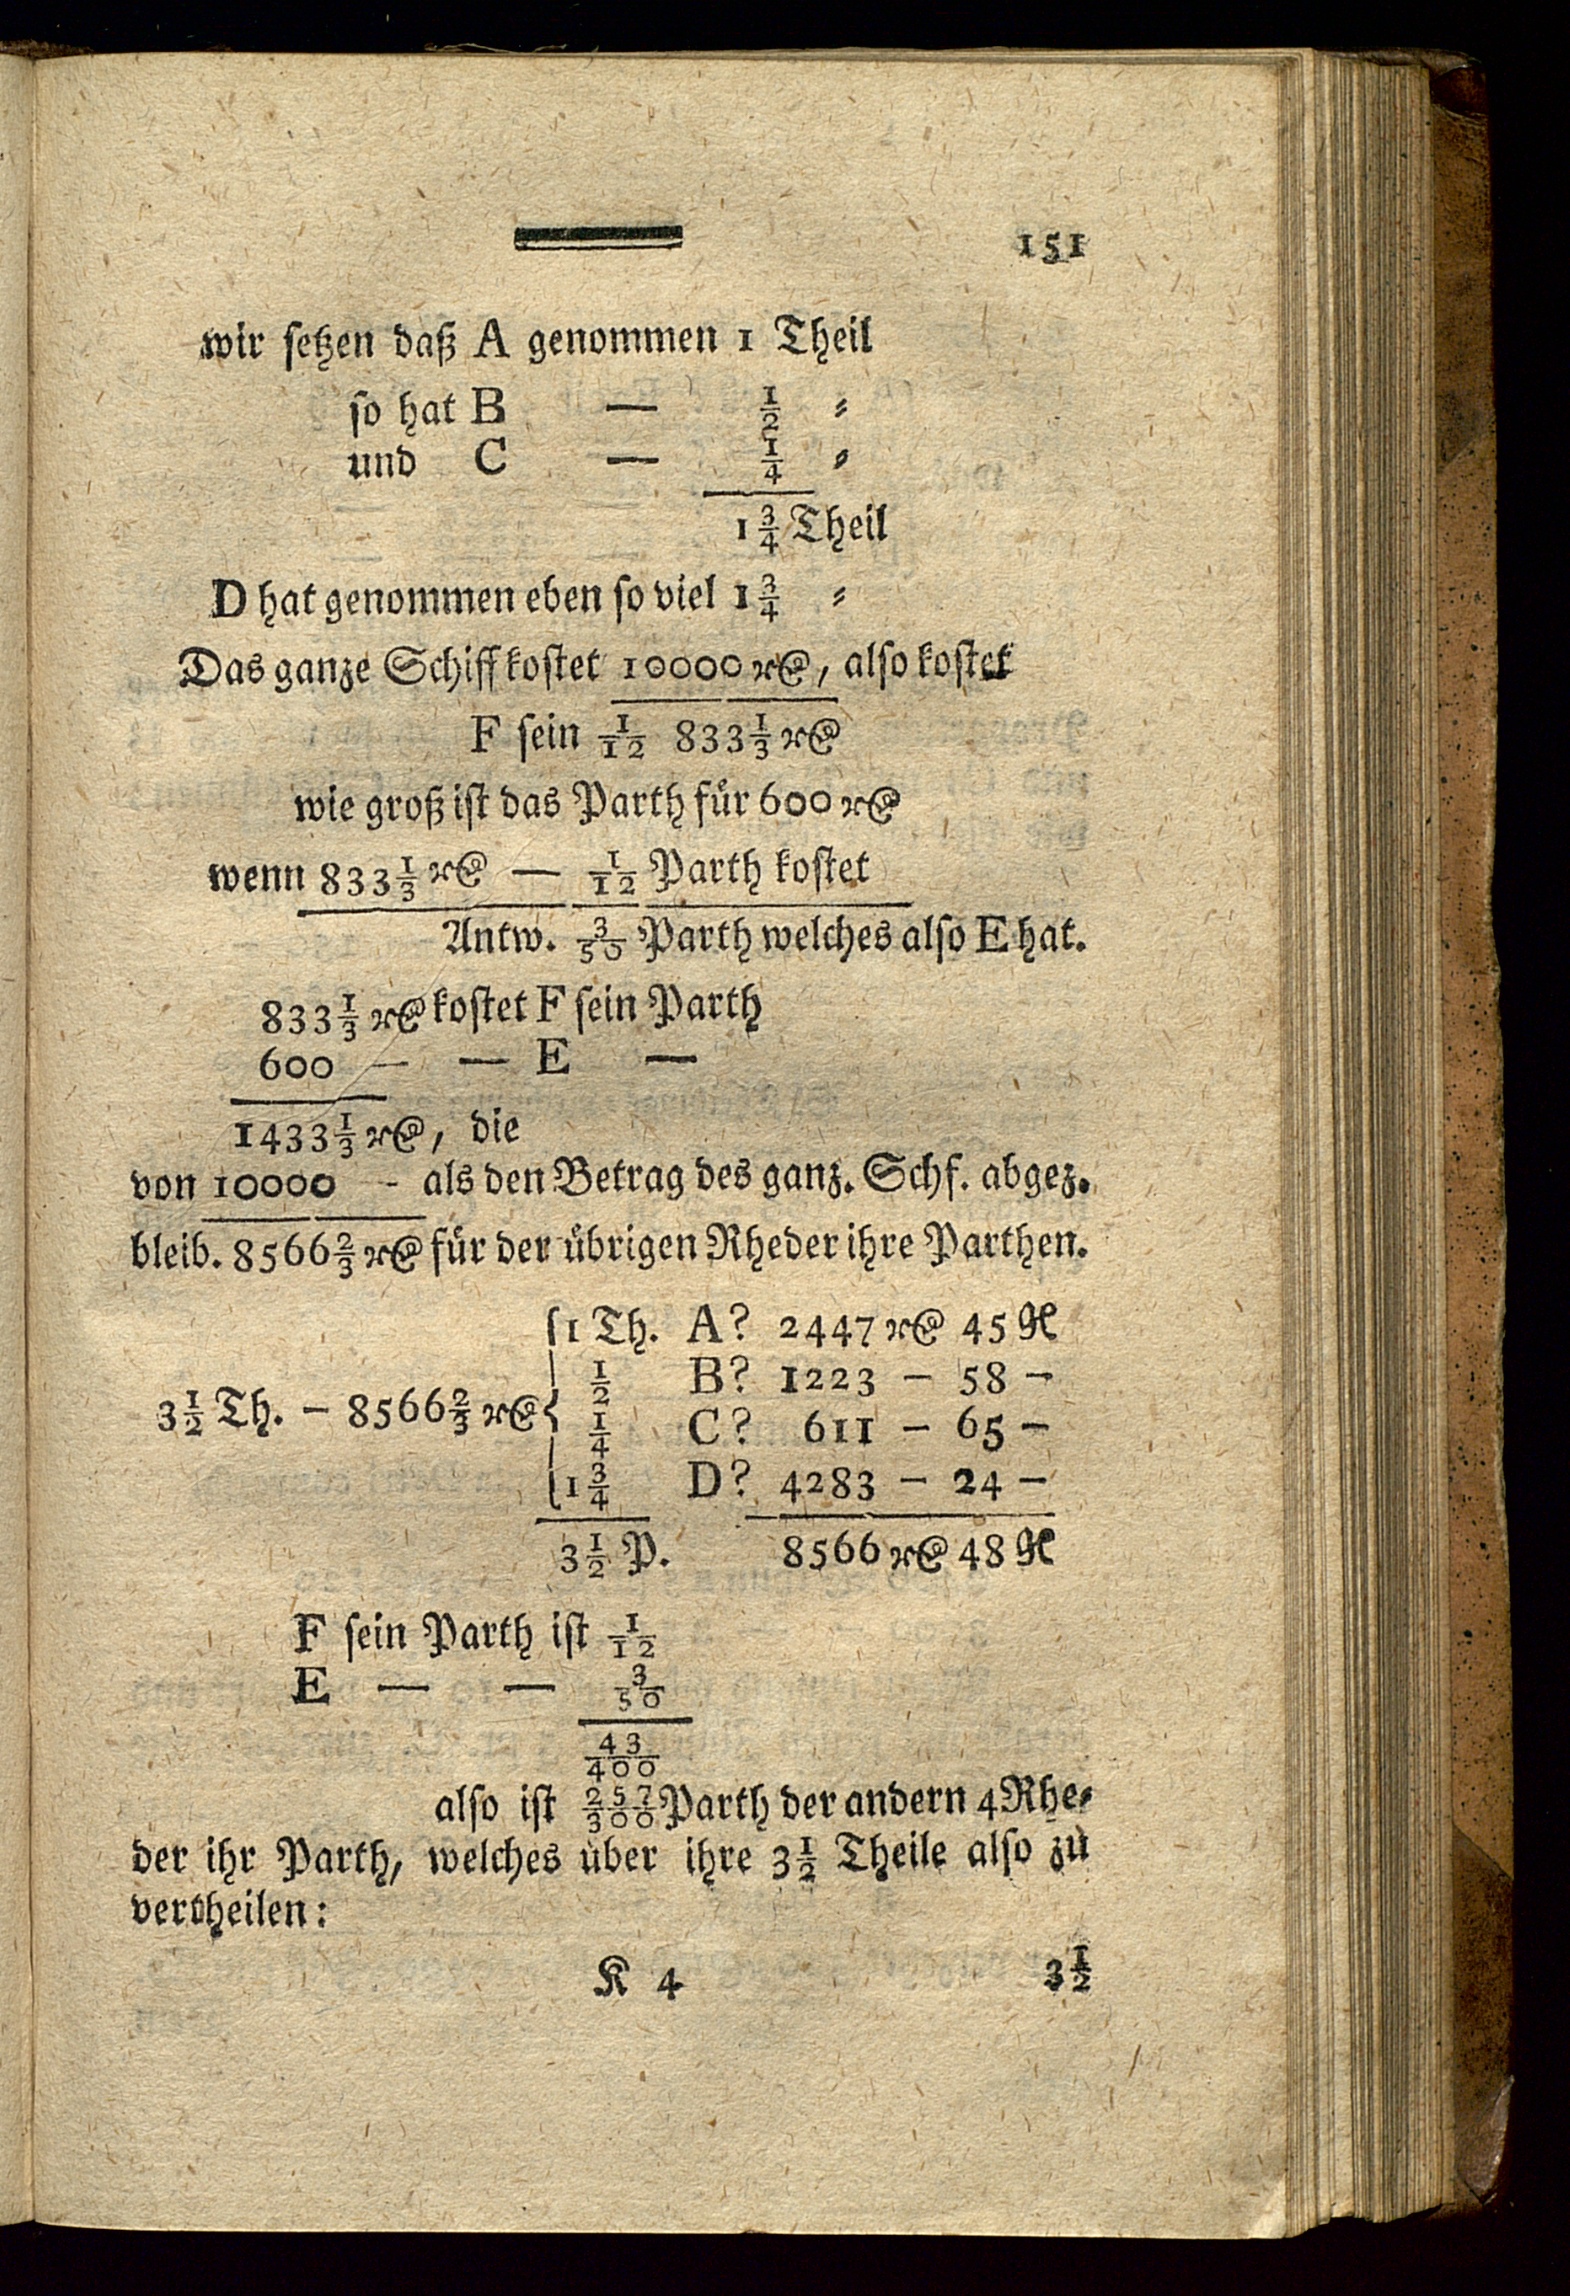 151
wir setzen daß A genommen 1 Theil
so hat B — 1/2 〃
und C — 1/4 〃
1 3/4 Theil
D hat genommen eben so viel 1 3/4 〃
Das ganze Schiff kostet 10000 r@, also kostet
F sein 1/12 833 1/3 r@
wie groß ist das Parth für 600 r@
wenn 833 1/3 r@ — 1/12 Parth kostet
Antw. 3/50 Parth welches also E hat.
833 1/3 r@ kostet F sein Parth
600 — — E —
1433 1/3 r@, die
von 10000 - als den Betrag des ganz. Schf. abgez.
bleib. 8566 2/3 r@ für der übrigen Rheder ihre Parthen.
1 Th. A? 2447 r@ 45 gl
1/2 B? 1223 — 58 —
3 1/2 Th. — 8566 2/3 r@ {
1/4 C? 611 — 65 —
1 3/4 D? 4283 — 24 —
3 1/2 P. 8566 r@ 48 gl
F sein Parth ist 1/12
E — — 3/50
43/400
also ist 257/300 Parth der andern 4 Rhe⸗
der ihr Parth, welches über ihre 3 1/2 Theile also zu
vertheilen:
K 4 3 1/2